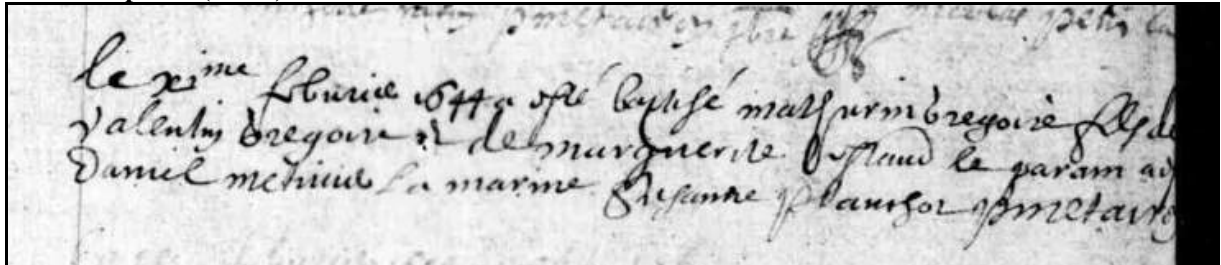 le xi me febvrier 1644 a esté baptisé mathurin gregoire filz de
valentin gregoire et de marguerite le param a
Daniel metivier la marine Suzanne planchot